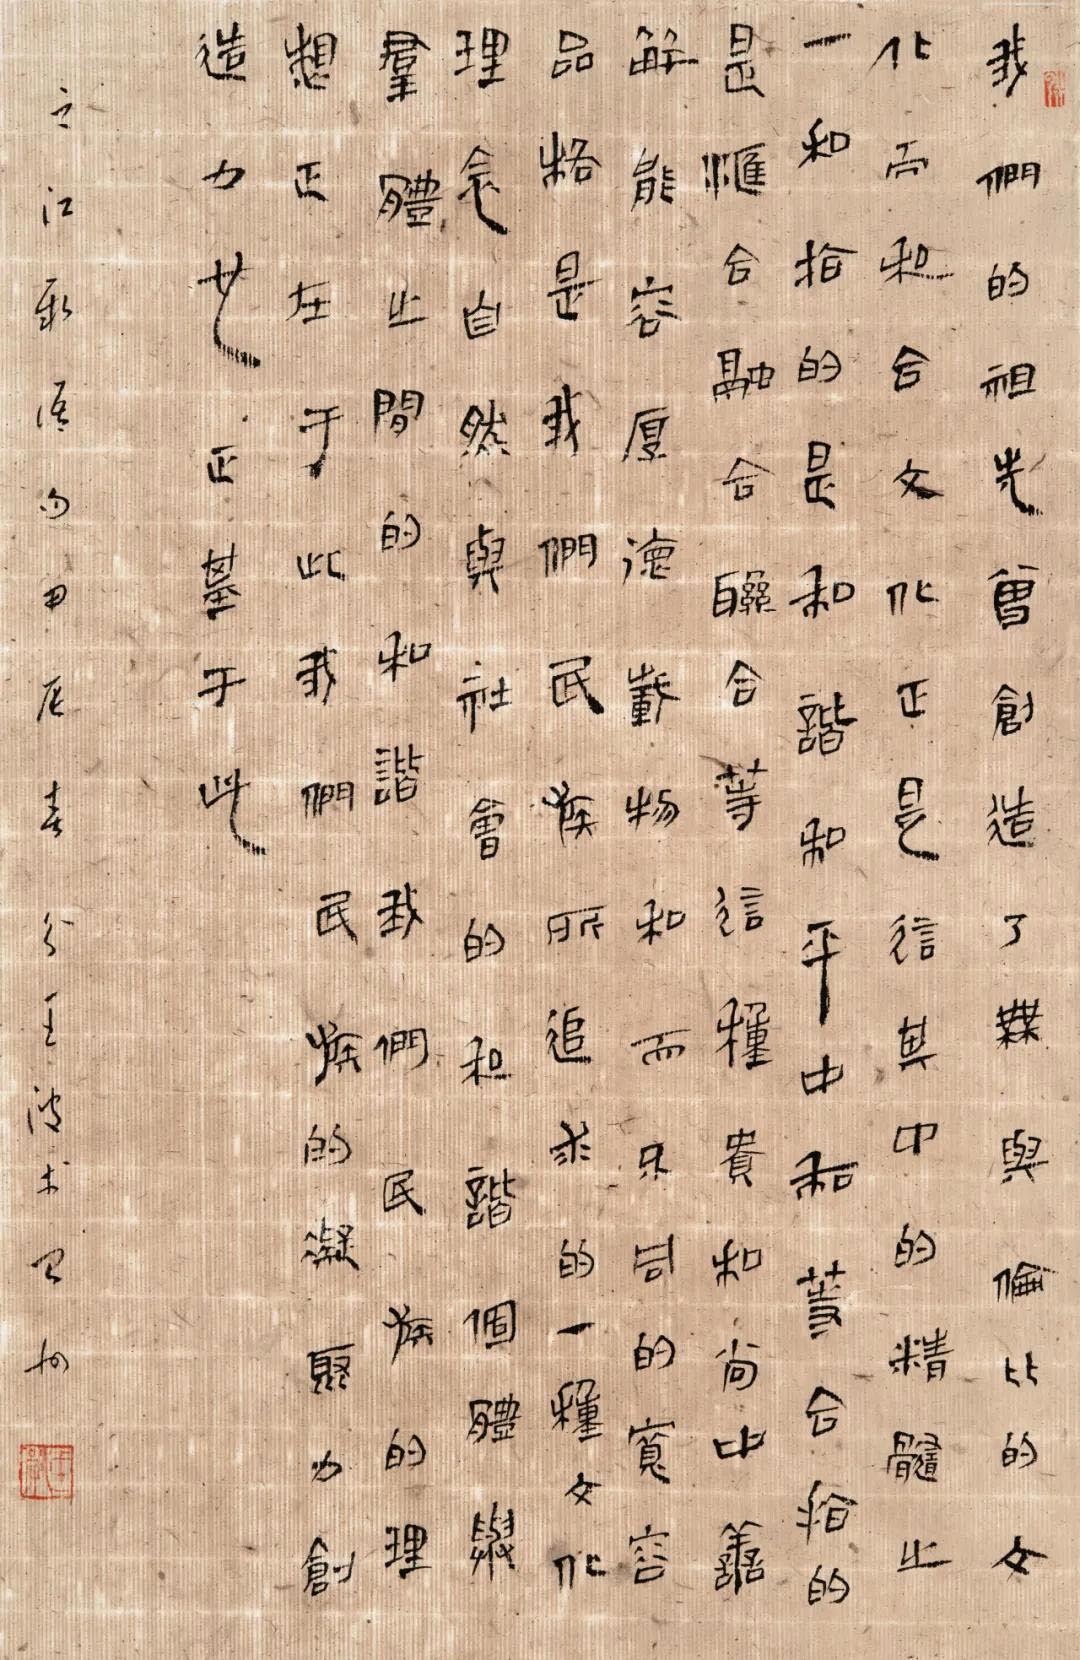 我們的祖先曾創造了無與倫比的文
化而和合文化正是這其中的精髓之
一和指的是和諧和平中和等合指的
是匯合融合聯合等這種貴和尚中善
解能容厚德載物和而不同的寬容
品格是我們民族所追求的一種文化
理念自然與社會的和諧個體與
羣體之間的和諧我們民族的理
想正在于此我們民族的凝聚力創
造力也正基于此
之江新語句甲辰春分王波书